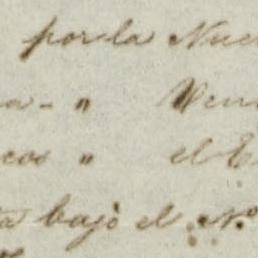 por la Nue
a - " Ven
cos " el E
ta bajo el N.º